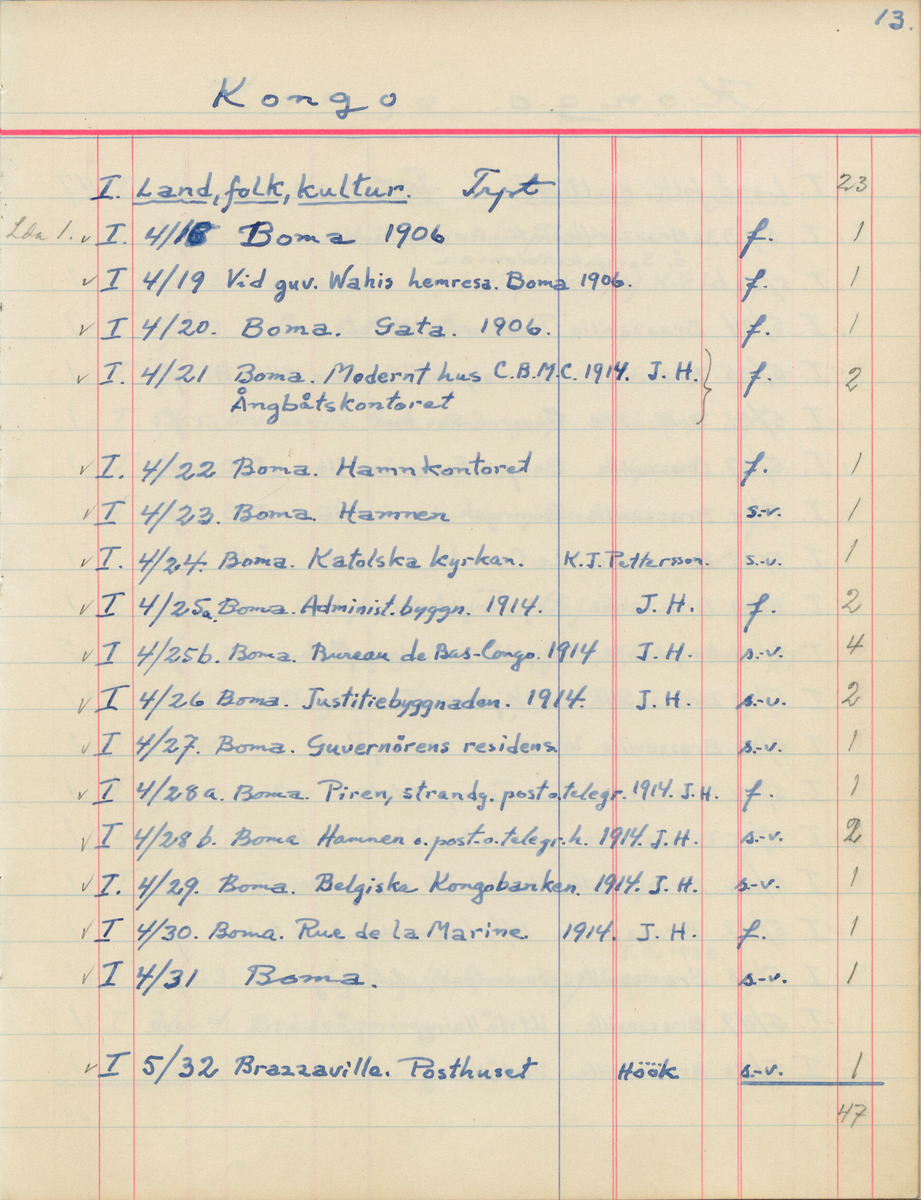 13.
Kongo
I. Land, folk, kultur. Trpt 23
Lda 1. ✓ I. 4/18 Boma 1906 f. 1
✓ I 4/19 Vid guv. Wahis hemresa. Boma 1906. f. 1
✓ I 4/20. Boma. Gata. 1906. f. 1
✓ I. 4/21 Boma. Modernt hus C.B.M.C. 1914. J. H. } f. 2
Ångbåtskontoret
✓ I. 4/22 Boma. Hamnkontoret f. 1
✓ I 4/23. Boma. Hamnen s.-v. 1
✓ I. 4/24. Boma. Katolska kyrkan. K.J. Pettersson. s.-v. 1
✓ I 4/25a. Boma. Administ. byggn. 1914. J. H. f. 2
✓ I 4/25b. Boma. Bureau de Bas-Congo. 1914 J. H. s.-v. 4
✓ I 4/26 Boma. Justitiebyggnaden. 1914. J. H. s.-v. 2
✓ I 4/27. Boma. Guvernörens residens. s.-v. 1
✓ I 4/28a. Boma. Piren, strandg. post o. telegr. 1914. J. H. f. 1
✓ I 4/28 b. Boma Hamnen o. post-o. telegr. h. 1914. J. H. s.-v. 2
✓ I. 4/29. Boma. Belgiska Kongobanken. 1914. J. H. s.-v. 1
✓ I 4/30. Boma. Rue de la Marine. 1914. J. H. f. 1
✓ I 4/31 Boma. s.-v. 1
✓ I 5/32 Brazzaville. Posthuset Höök s.-v. 1
47